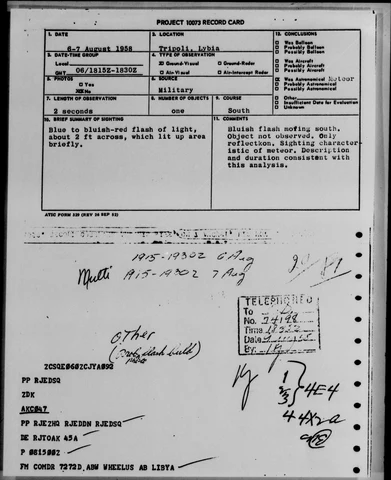 PROJECT 10073 RECORD CARD
1. DATE
6-7 August 1958
2. LOCATION
Tripoli, Lybia
12. CONCLUSIONS
□ Was Balloon
□ Probably Balloon
□ Possibly Balloon
□ Was Aircraft
□ Probably Aircraft
□ Possibly Aircraft
□ Was Astronomical Meteor
□ Probably Astronomical
□ Possibly Astronomical
□ Other
□ Insufficient Data for Evaluation
□ Unknown
3. DATE-TIME GROUP
Local
GMT 06/1815Z-1830Z
4. TYPE OF OBSERVATION
Ground-Visual
□ Ground-Radar
□ Air-Visual
□ Air-Intercept Radar
5. PHOTOS
□ Yes
No
6. SOURCE
Military
7. LENGTH OF OBSERVATION
2 seconds
8. NUMBER OF OBJECTS
one
9. COURSE
South
10. BRIEF SUMMARY OF SIGHTING
Blue to bluish-red flash of light,
about 2 ft across, which lit up area
briefly.
11. COMMENTS
Bluish flash moving south.
Object not observed. Only
reflectkon. Sighting character-
istic of meteor. Description
and duration consistent with
this analysis.
ATIC FORM 329 (REV 26 SEP 52)
1915-1930Z 6 Aug
Multi 1915-1930Z 7 Aug
TELEPHONED
To
No. 74198
Time
Date
By
Other
2CSQE060ZCJYA092
PP RJEDSQ
ZDK
AKC047
PP RJEZHQ RJEDDN RJEDSQ
DE RJYOAK 45A
P 081500Z
FM COMDR 7272D ABW WHEELUS AB LIBYA
1
2
3
4E4
4 4X2a